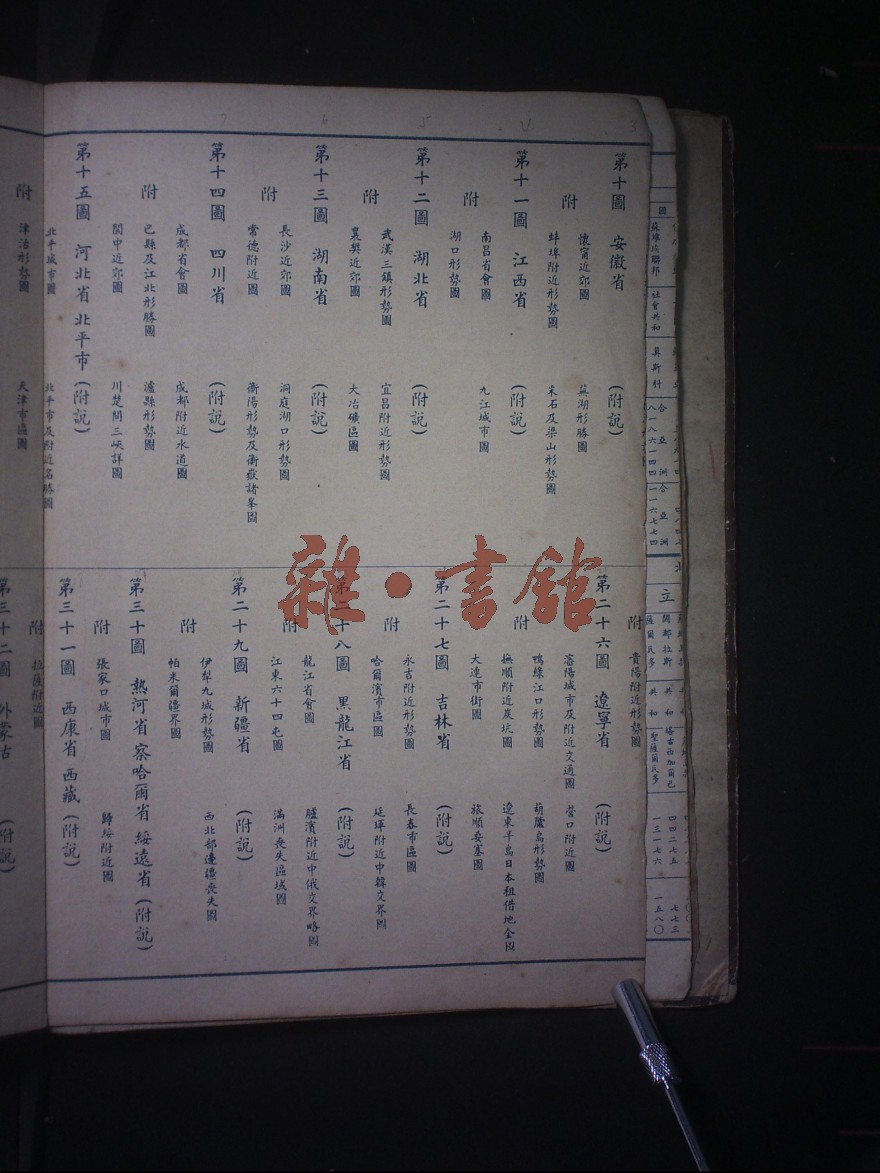 第十圖 安徽省 (附說)
附 懷甯近郊圖 蕪湖形勝圖
蚌埠附近形勢圖 采石及梁山形勢圖
第十一圖 江西省 (附說)
附 南昌省會圖 九江城市圖
湖口形勢圖
第十二圖 湖北省 (附說)
附 武漢三鎮形勢圖 宜昌附近形勢圖
襄樊近郊圖 大冶礦區圖
第十三圖 湖南省 (附說)
附 長沙近郊圖 洞庭湖口形勢圖
常德附近圖 衡陽形勢及衡嶽諸峯圖
第十四圖 四川省 (附說)
成都省會圖 成都附近水道圖
附 巴縣及江北形勝圖 瀘縣形勢圖
閬中近郊圖 川楚間三峽詳圖
第十五圖 河北省 北平市 (附說)
北平城市圖 北平市及附近名勝圖
附 津沽形勢圖 天津市區圖
附 貴陽附近形勢圖
第二十六圖 遼寧省 (附說)
瀋陽城市及附近交通圖 營口附近圖
附 鴨綠江口形勢圖 葫蘆島形勢圖
撫順附近炭坑圖 遼東半島日本租借地全圖
大連市街圖 旅順要塞圖
第二十七圖 吉林省 (附說)
附 永吉附近形勢圖 長春市區圖
哈爾濱市區圖 延琿附近中韓交界圖
第二十八圖 黑龍江省 (附說)
附 龍江省會圖 臚濱附近中俄交界略圖
江東六十四屯圖 滿洲喪失區域圖
第二十九圖 新疆省 (附說)
附 伊犁九城形勢圖 西北部邊疆喪失圖
帕米爾疆界圖
第三十圖 熱河省 察哈爾省 綏遠省 (附說)
附 張家口城市圖 歸綏附近圖
第三十一圖 西康省 西藏 (附說)
附 拉薩附近圖
第三十二圖 外蒙古 (附說)
雜·書館